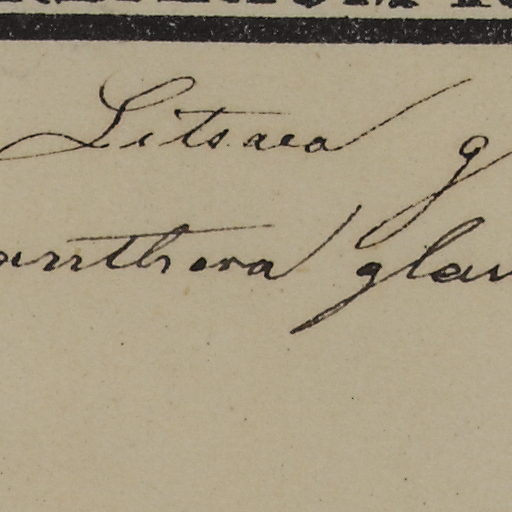 Litsaea g
anthera glau